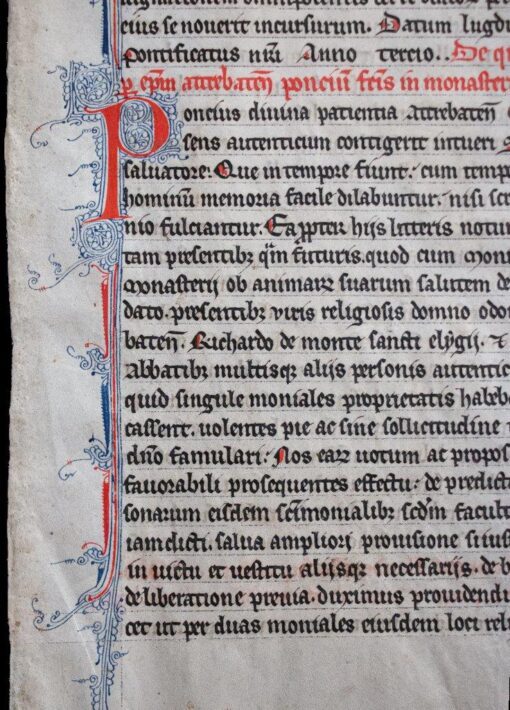 eius se noverit incursurum. Datum lugdu
pontificatus nr̄i Anno tercio.. De qu
p ep̄m attrebateñ ponciū fc̄is in monasteri
Poncius divina patientia Attrebateñ
sens autenticum contigerit intueri
salvatore. Que in tempore fiunt. cum temp
hominū memoria facile dilabuntur. nisi scr
nio fulciantur. Ea ꝓpter hijs litteris notum
tam presentibꝫ qm̄ futuris. quod cum moni
monasterij ob animarꝝ suarum salutem de
dato. presentibꝫ viris religiosis domno odon
bateñ. Richardo de monte sancti elygij. ⁊
Abbatibꝫ multisqꝫ alijs personis autentic
quid singule moniales proprietatis habeba
cassent. volentes pie ac sine sollicitudine
dn̄o famulari. Nos earꝝ votum ac propos
favorabili prosequentes effectu. de predicta
sonarum eisdem sc̄imonialibꝫ scd̄m facult
iamdicti. salva ampliori provisione si ius
in victu et vestitu alijsqꝫ necessarijs. de b
deliberatione previa. duximus providendu
cet ut per duas moniales eiusdem loci reli